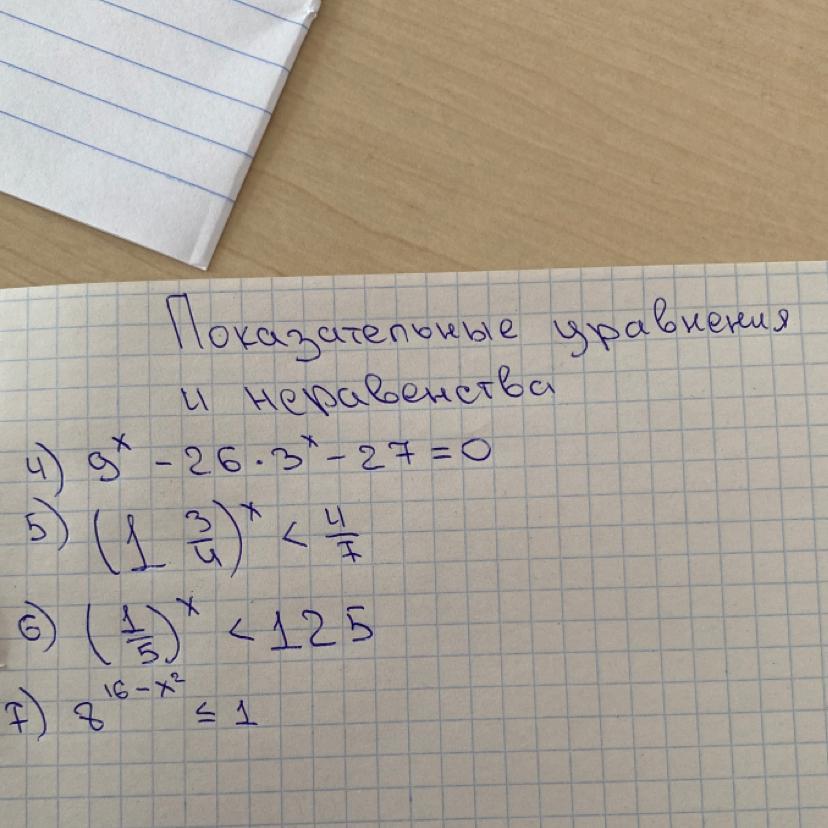 Показательные уравнения
и неравенства
4) 9^x - 26 · 3^x - 27 = 0
5) (1 3/4)^x < 4/7
6) (1/5)^x < 125
7) 8^(16 - x²) ≤ 1